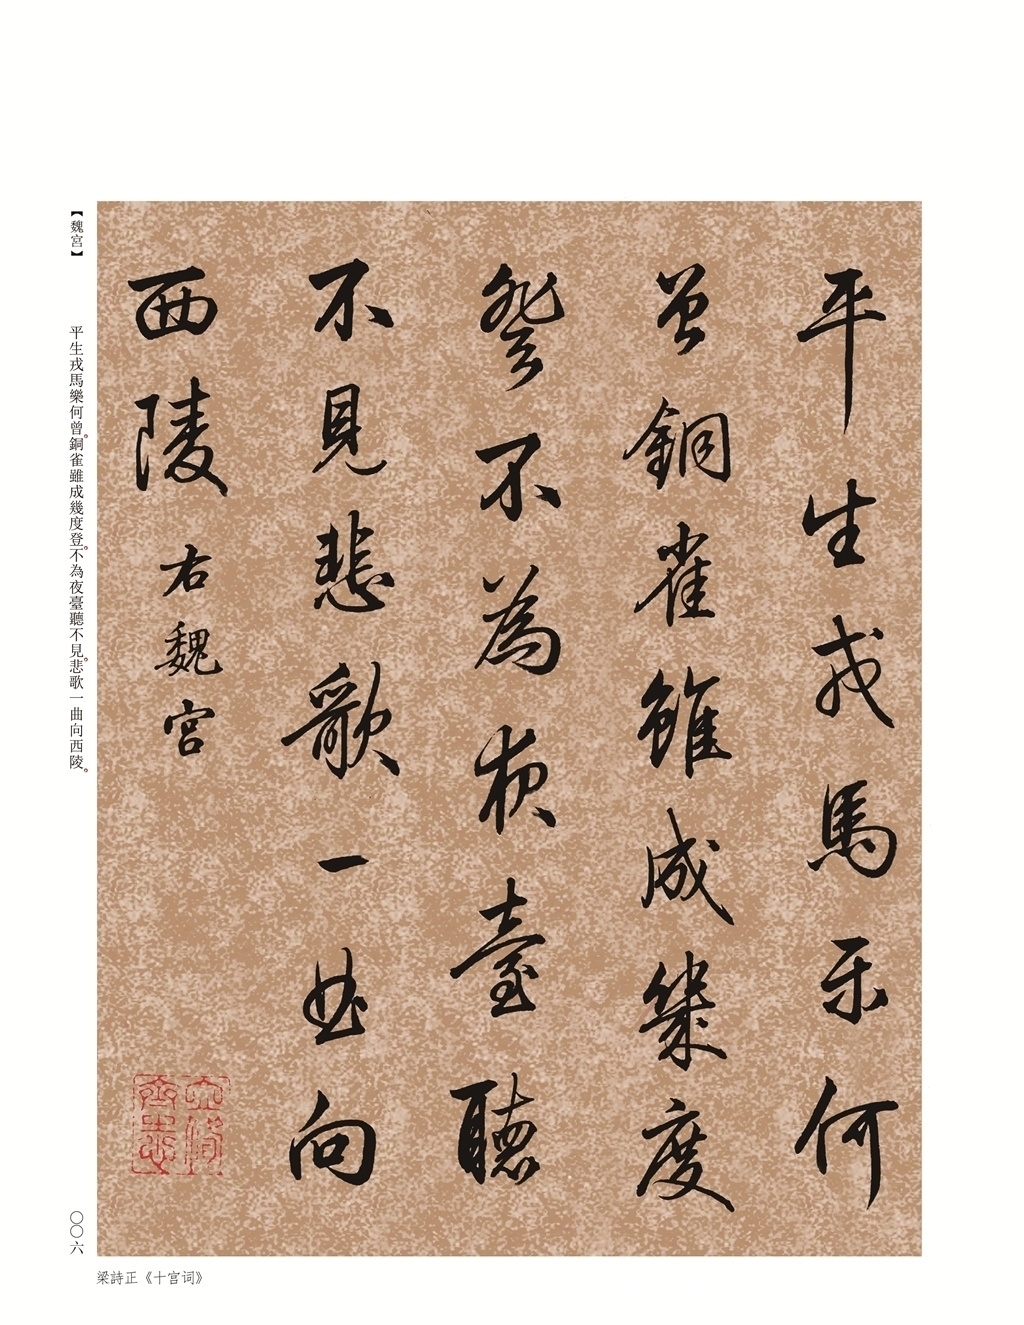 平生戎馬樂何
曾銅雀雖成幾度
登不為夜臺聽
不見悲歌一曲向
西陵 右魏宮
【魏宮】 平生戎馬樂何曾。銅雀雖成幾度登。不為夜臺聽不見。悲歌一曲向西陵。
〇〇六
梁詩正《十宫词》